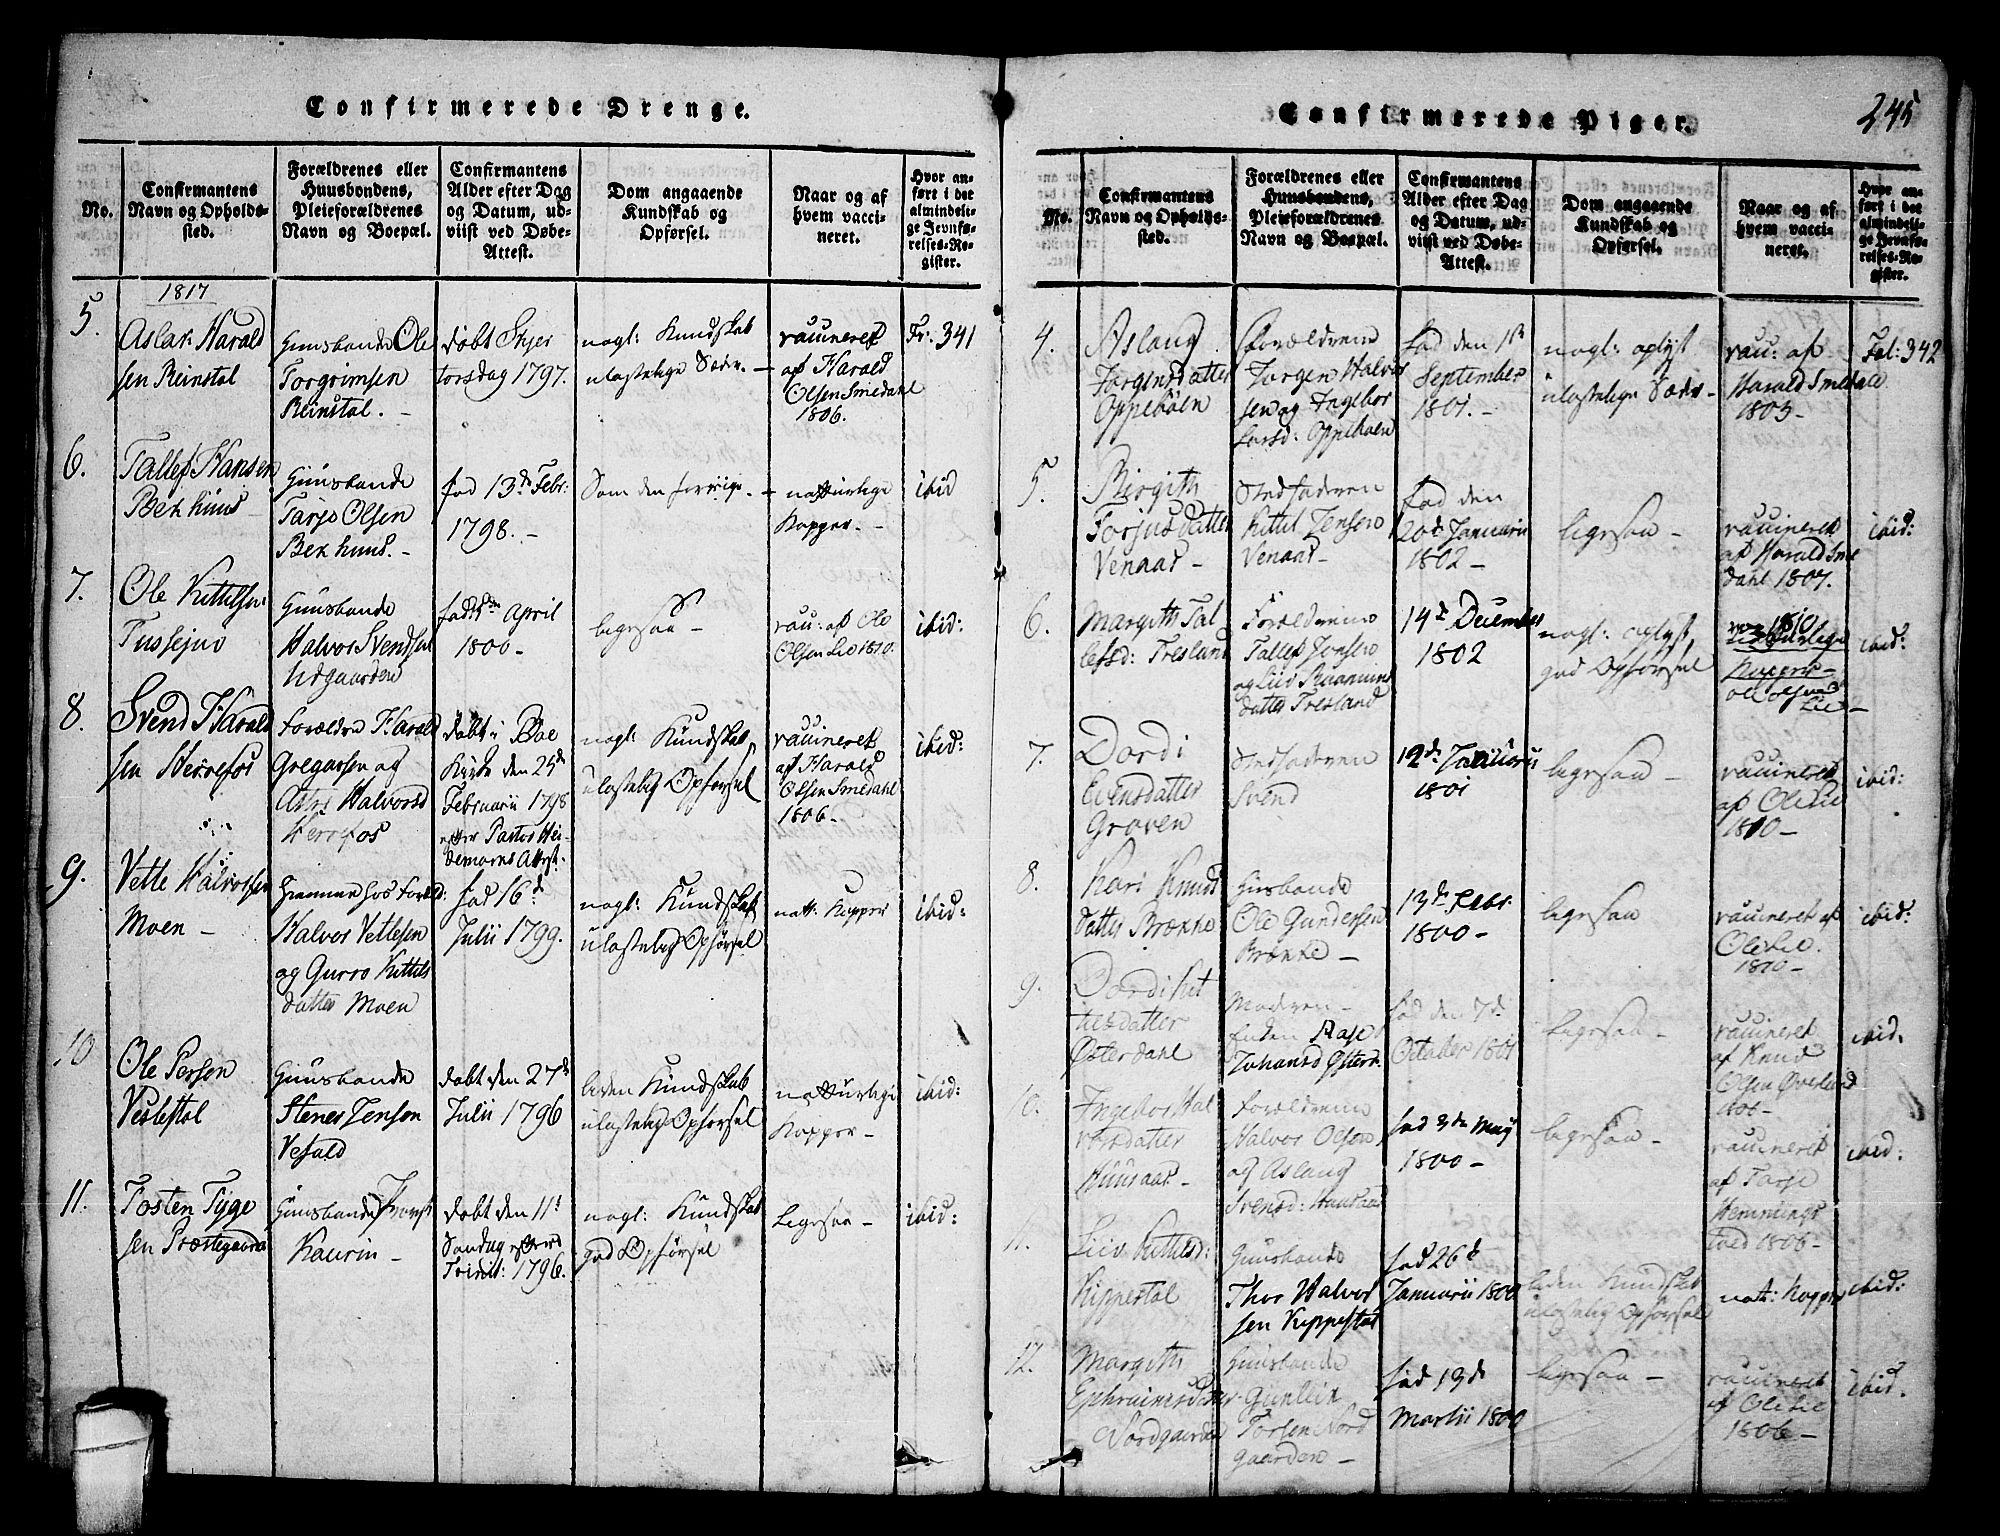 Confirmerede Drenge.
No.
Confirmantens
Navn og Opholds-
sted.
Forældrenes eller
Huusbondens,
Pleieforældrenes
Navn og Boepæl.
Confirmantens
Alder efter Dag
og Datum, ud-
viist ved Døbe-
Attest.
Dom angaaende
Kundskab og
Opførsel.
Naar og af
hvem vacci-
neret.
Hvor an-
ført i det
almindeli-
ge Jevnfø-
relses-Re-
gister.
1817
5.
Aslak Harald
sen Reinstal
Huusbonde Ole
Torgrimsen
Reinstal. -
døbt Skjer
torsdag 1797.
nogl: Kundskab
ulastelige Sæder. -
vaccineret
af Harald
Olsen Smedahl
1806.
Fr: 341
6.
Tallef Hansen
Bekhuus
Huusbonde
Tarje Olsen
Bekhuus. -
fød 13de Febr:
1798. -
Som den forrige. -
naturlige
Kopper. -
ibid
7.
Ole Kittilsen
Tussejuv
Huusbonde
Halvor Svendsen
Udgaarden
April
1800 -
ligesaa -
vacc: af Ole
Olsen Lie 1810.
ibid:
8.
Svend Harald
sen Herrefos
Forældre Harald
Gregarsen og
Halvorsd
Herrefos
døbt i Bøe
Kirke den 25de
Februarii 1798
efter Pastor Hei-
demarks Attest.
nogl: Kundskab
ulastelig Opførsel
vaccineret
af Harald
Olsen Smedahl
1806. -
ibid:
9.
Vetle Halvorsen
Moen -
hos Foræld:
Halvor Vetlesen
og Gurro Kittils
datter Moen
fød 16de
Julii 1799.
nogl: Kundskab
ulastelig Opførsel
natt: Kopper
ibid:
10
Ole Persen
Veslestal
Huusbonde
Jensen
døbt den 27de
Julii 1796
liden Kundskab
ulastelig Opførsel
naturlige
Kopper -
ibid:
11.
Tosten Tyge
sen Præstegaarden
Huusbonde Provst
Kaurin -
døbt den 11te
Søndag efter
Trinit: 1796.
nogl: Kundskab
god Opførsel
Ligesaa -
ibid:
Confirmerede Piger.
245
No.
Confirmantens
Navn og Opholds-
sted.
Forældrenes eller
Huusbondens,
Pleieforældrenes
Navn og Boepæl.
Confirmantens
Alder efter Dag
og Datum, ud-
viist ved Døbe-
Attest.
Dom angaaende
Kundskab og
Opførsel.
Naar og af
hvem vacci-
neret.
Hvor an-
ført i det
almindeli-
ge Jevnfø-
relses-Re-
gister.
4.
Aslaug
Jørgensdatter
Oppebøen
Forældrene
Jørgen Halvor
sen og Ingebor
Larsd: Oppebøen
fød den 1ste
September
1801. -
nogl: oplyst
ulastelige Sæder -
vacc: af
Harald Smedale
1803 -
Fol: 342
5.
Birgith
Torjusdatter
Venaas -
Stedfaderen
Kittil Jensen
Venaas -
fød den
20de Januarii
1802 -
ligesaa -
vaccineret
af Harald Sme
dahl 1807.
ibid:
6.
Margith Tal
lefsd: Tresland
Forældrene
Tallef Jonsen
og Liv
datter Tresland
14de December
1802
nogl: oplyst,
god Opførsel
1810.
naturlige
Kopper -
Ole Olsen
Lie -
ibid:
7.
Dordi
Evensdatter
Groven
Stedfaderen
Svend
12de Januarii
1801
ligesaa -
vaccineret
af Ole Lie
1810 -
ibid:
8.
Kari Knuds
datter Brække
Huusbonde
Ole Gundersen
Brække -
13de Febr:
1800 -
ligesaa
vaccineret af
Ole Lie.
1810 -
ibid:
9.
Dordi Kit
tilsdatter
Østerdahl
Modren -
Enken Aase
Johansd Østerd.
fød den 7de
October 1801
ligesaa -
vaccineret
af Knud
Olsen Øverland
1806 -
ibid.
10.
Ingebor Hal
vorsdatter
Huusaas -
Forældrene
Halvor Olsen
og Aslaug
Svensd: Huusaas
fød 3de Maij
1800 -
ligesaa -
vaccineret
af Tarje
Hemmings
tved 1806 -
ibid:
11.
Liiv Kittilsd:
Kippestal
Huusbonde
Thor Halvor
sen Kippestal
fød 26de
Januarii 1800
liden Kundskab
ulastelig Opførsel
natt: Kopper
ibid:
12.
Margith
Ephraimsdatter
Nordgaarden
Huusbonde
Gunleik
Torsen Nord
gaarden -
fød 13de
Martii 1800
ligesaa -
vaccineret
af Ole Lie
1806 -
ibid.